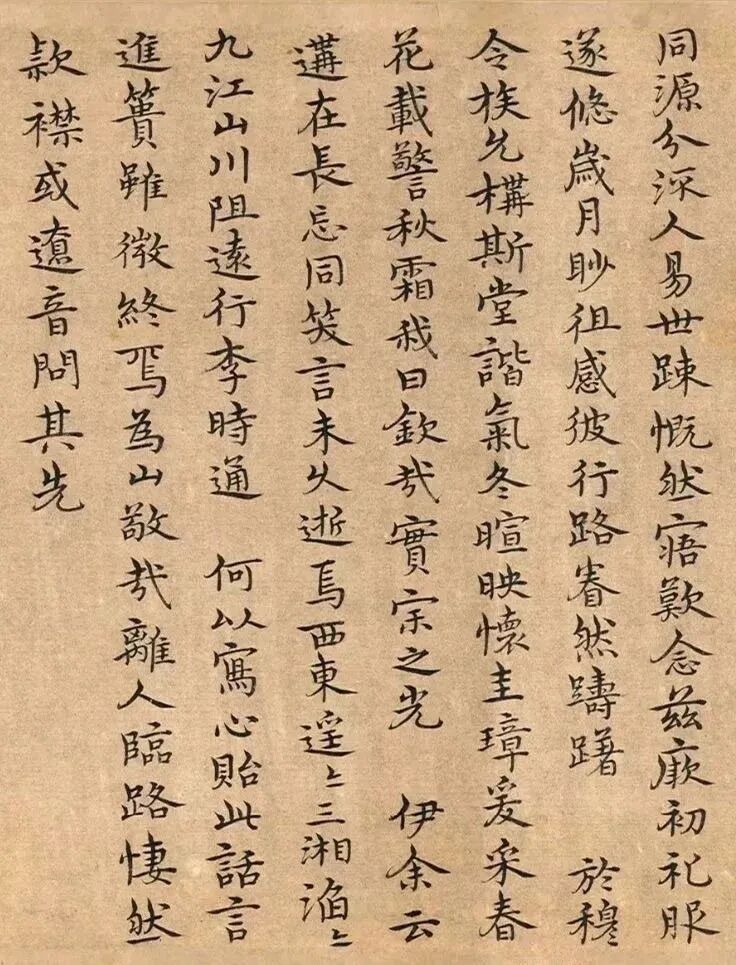 同源分派人易世踈慨然寤歎念兹厥初礼服
遂悠歲月眇徂感彼行路眷然躊躇 於穆
令族允構斯堂諧氣冬暄映懷圭璋爰采春
花載警秋霜我曰欽哉實宗之光 伊余云
遘在長忘同笑言未久逝焉西東遥〻三湘滔〻
九江山川阻遠行李時通 何以寫心貽此話言
進簣雖微終焉為山敬哉離人臨路悽然
款襟或遼音問其先